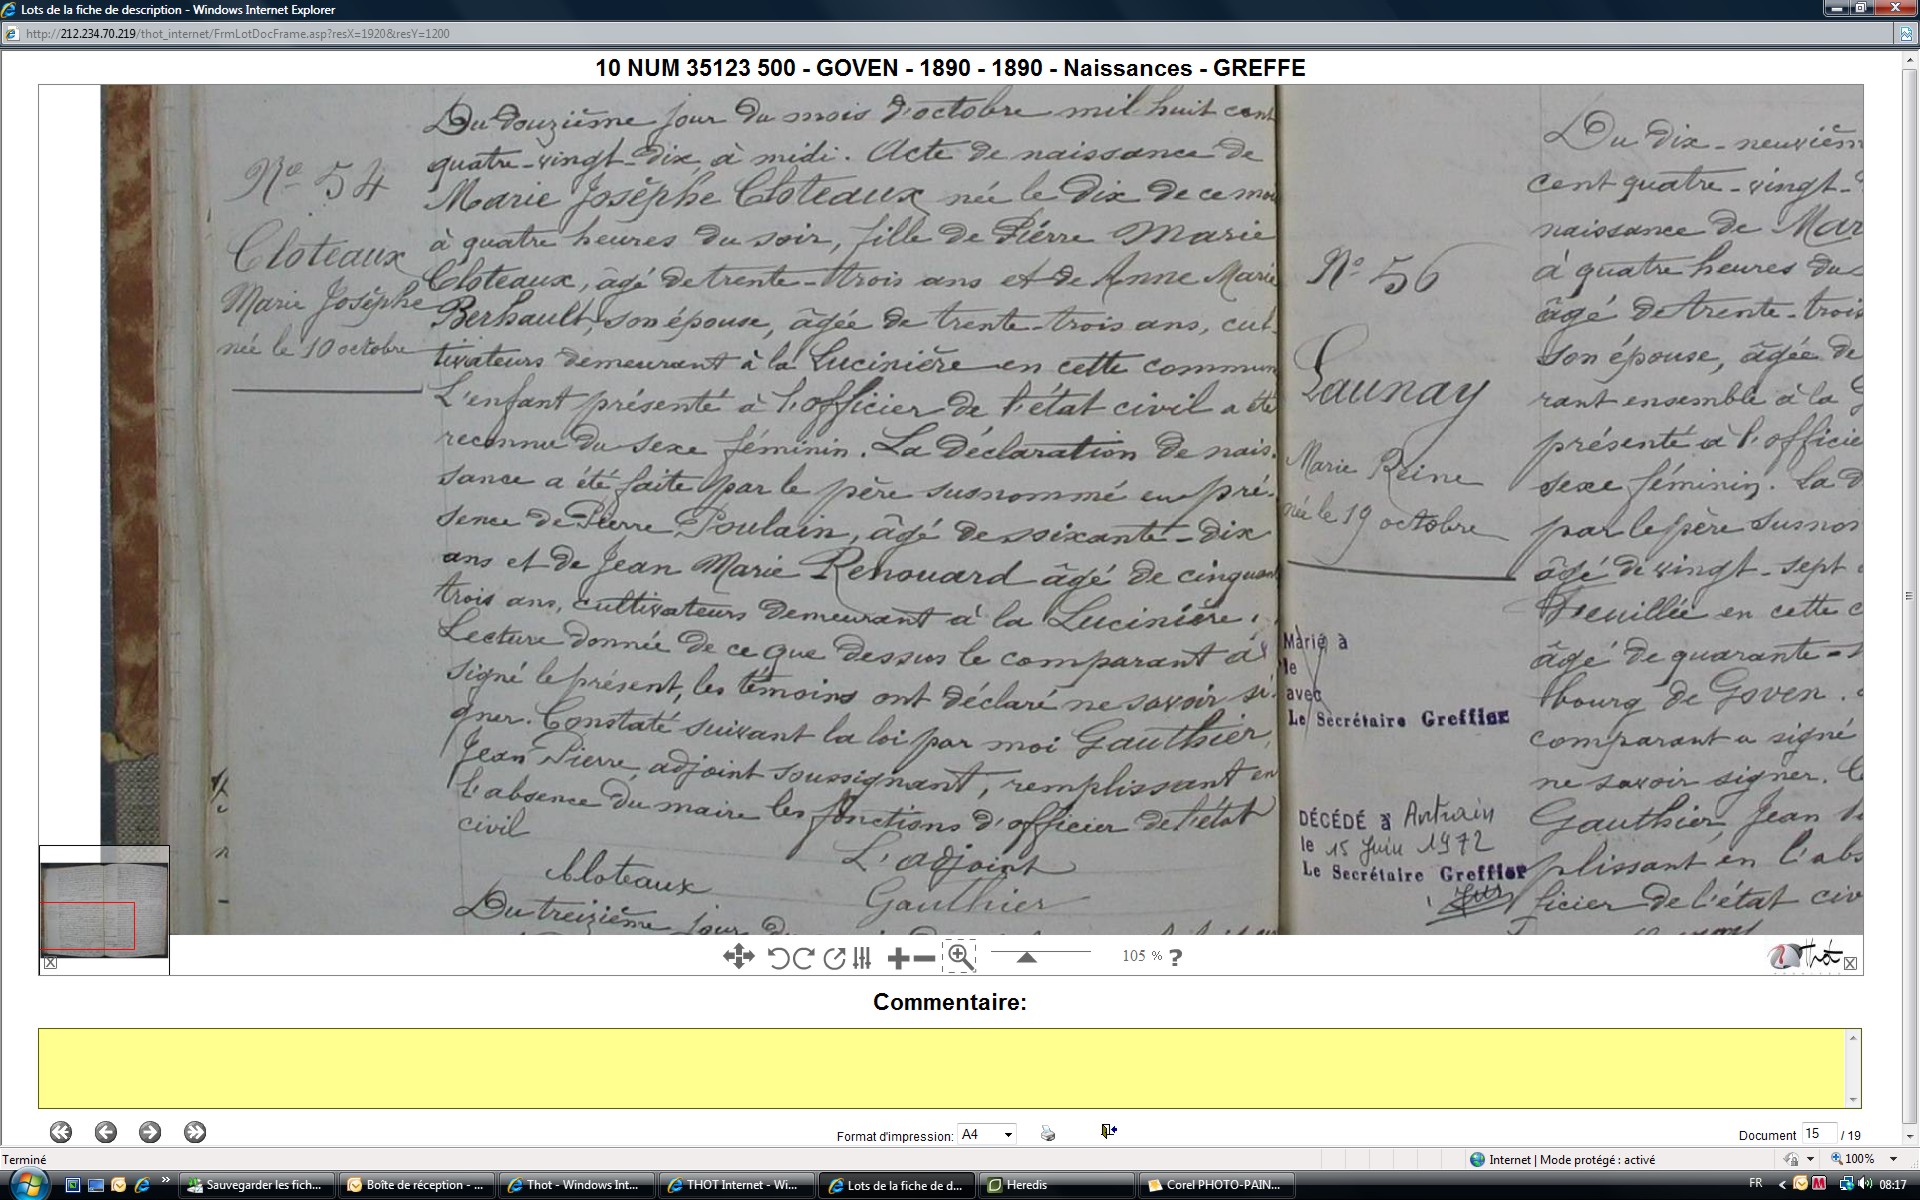 Lots de la fiche de description - Windows Internet Explorer
http://212.234.70.219/thot_internet/FrmLotDocFrame.asp?resX=1920&resY=1200
10 NUM 35123 500 - GOVEN - 1890 - 1890 - Naissances - GREFFE
No 54
Cloteaux
Marie Josèphe
née le 10 octobre
Du douzième jour du mois d'octobre mil huit cent
quatre-vingt-dix à midi. Acte de naissance de
Marie Josèphe Cloteaux née le dix de ce moi
à quatre heures du soir, fille de Pierre Marie
Cloteaux, âgé de trente-trois ans et de Anne Marie
Berhault, son épouse, âgée de trente-trois ans, cul-
tivateurs demeurant à la Lucinière en cette commun
L'enfant présenté à l'officier de l'état civil a été
reconnu du sexe féminin. La déclaration de nais-
sance a été faite par le père susnommé en pré-
sence de Pierre Poulain, âgé de soixante-dix
ans et de Jean Marie Renouard âgé de cinquan
trois ans, cultivateurs demeurant à la Lucinière.
Lecture donnée de ce que dessus le comparant a
signé le présent, les témoins ont déclaré ne savoir si-
gner. Constaté suivant la loi par moi Gauthier,
Jean Pierre, adjoint soussignant, remplissant en
l'absence du maire les fonctions d'officier de l'état
civil
L'adjoint
Cloteaux
Gauthier
Du treizième jour du
No 56
Launay
Marie Reine
née le 19 octobre
Marié à
le
avec
Le Secrétaire Greffier
DÉCÉDÉ à Antrain
le 15 Juin 1972
Le Secrétaire Greffier
Du dix-neuvièm
cent quatre-vingt-
naissance de Mar
à quatre heures du
âgé de trente-trois
son épouse, âgée de
rant ensemble à la
présenté à l'officie
sexe féminin. La d
par le père susnom
âgé de vingt-sept
Feuillée en cette c
âgé de quarante-
bourg de Goven.
comparant a signé
ne savoir signer. C
Gauthier, Jean
plissant en l'abs
ficier de l'état civ
105 % ?
Thot
Commentaire:
Format d'impression: A4
Document 15 / 19
Terminé
Internet | Mode protégé : activé
100%
Sauvegarder les fich...
Boîte de réception - ...
Thot - Windows Int...
THOT Internet - Wi...
Lots de la fiche de d...
Heredis
Corel PHOTO-PAIN...
FR
08:17